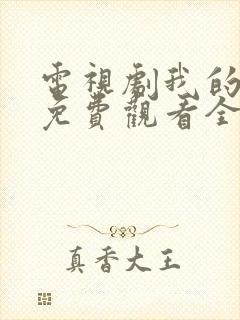 電視劇我的
免費觀看全
真香大王